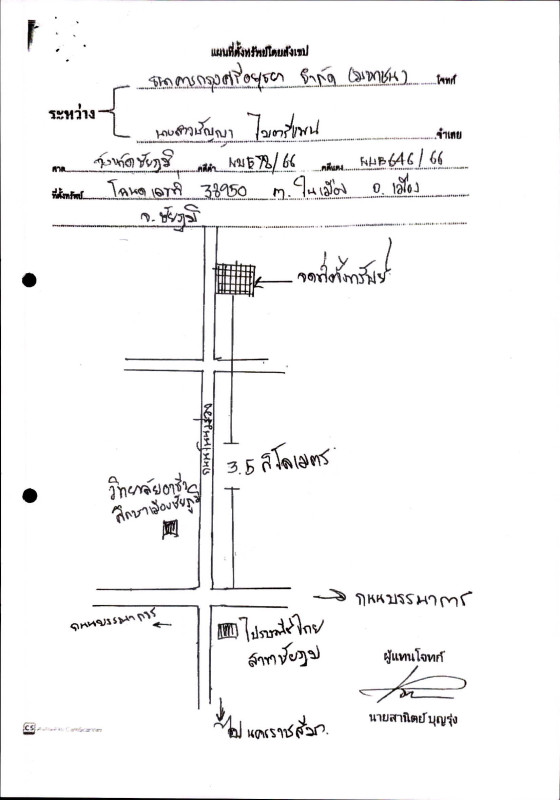 แผนที่ตั้งทรัพย์โดยสังเขป
ธนาคารกรุงศรีอยุธยา จำกัด (มหาชน) โจทก์
ระหว่าง
นางสาวปัญญา จำเลย
ศาล จังหวัดชัยภูมิ คดีดำ ผบE78/66 คดีแดง ผบE646/66
ที่ตั้งทรัพย์ โฉนดเลขที่ 38950 ต.ในเมือง อ.เมือง
จ.ชัยภูมิ
จุดที่ตั้งทรัพย์
3.5 กิโลเมตร
วิทยาลัยอาชีว
ศึกษาเมืองชัยภูมิ
ถนนบรรณาการ
ถนนบรรณาการ
ไปรษณีย์ไทย
สาขาชัยภูมิ
ผู้แทนโจทก์
นายสานิตย์ บุญรุ่ง
ไป นครราชสีมา
CS